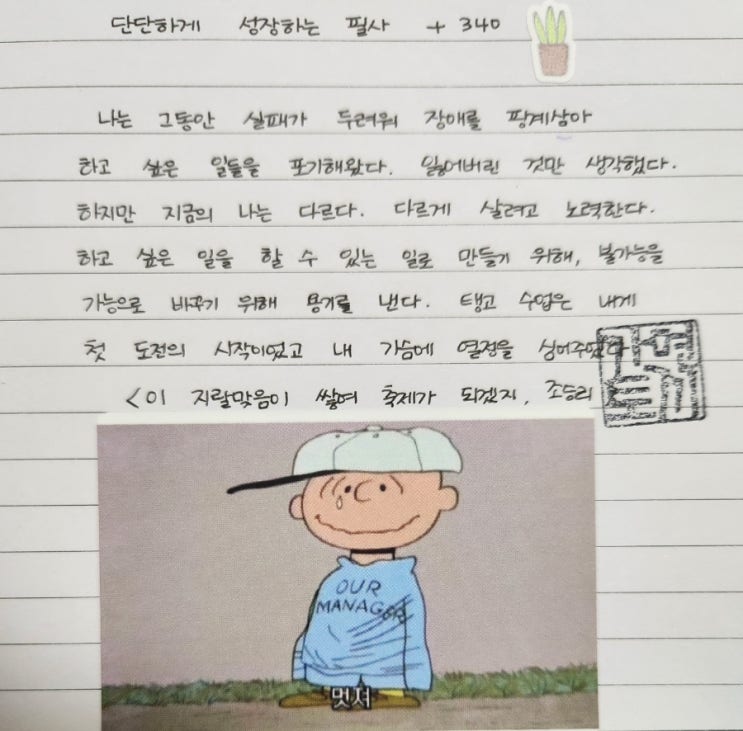 단단하게 성장하는 필사 + 340
나는 그동안 실패가 두려워 장애를 핑계삼아
하고 싶은 일들을 포기해왔다. 잃어버린 것만 생각했다.
하지만 지금의 나는 다르다. 다르게 살려고 노력한다.
하고 싶은 일을 할 수 있는 일로 만들기 위해, 불가능을
가능으로 바꾸기 위해 용기를 낸다. 탱고 수업은 내게
첫 도전의 시작이었고 내 가슴에 열정을 심어주었다
<이 지랄맞음이 쌓여 축제가 되겠지, 조승리
OUR
MANAGER
멋져